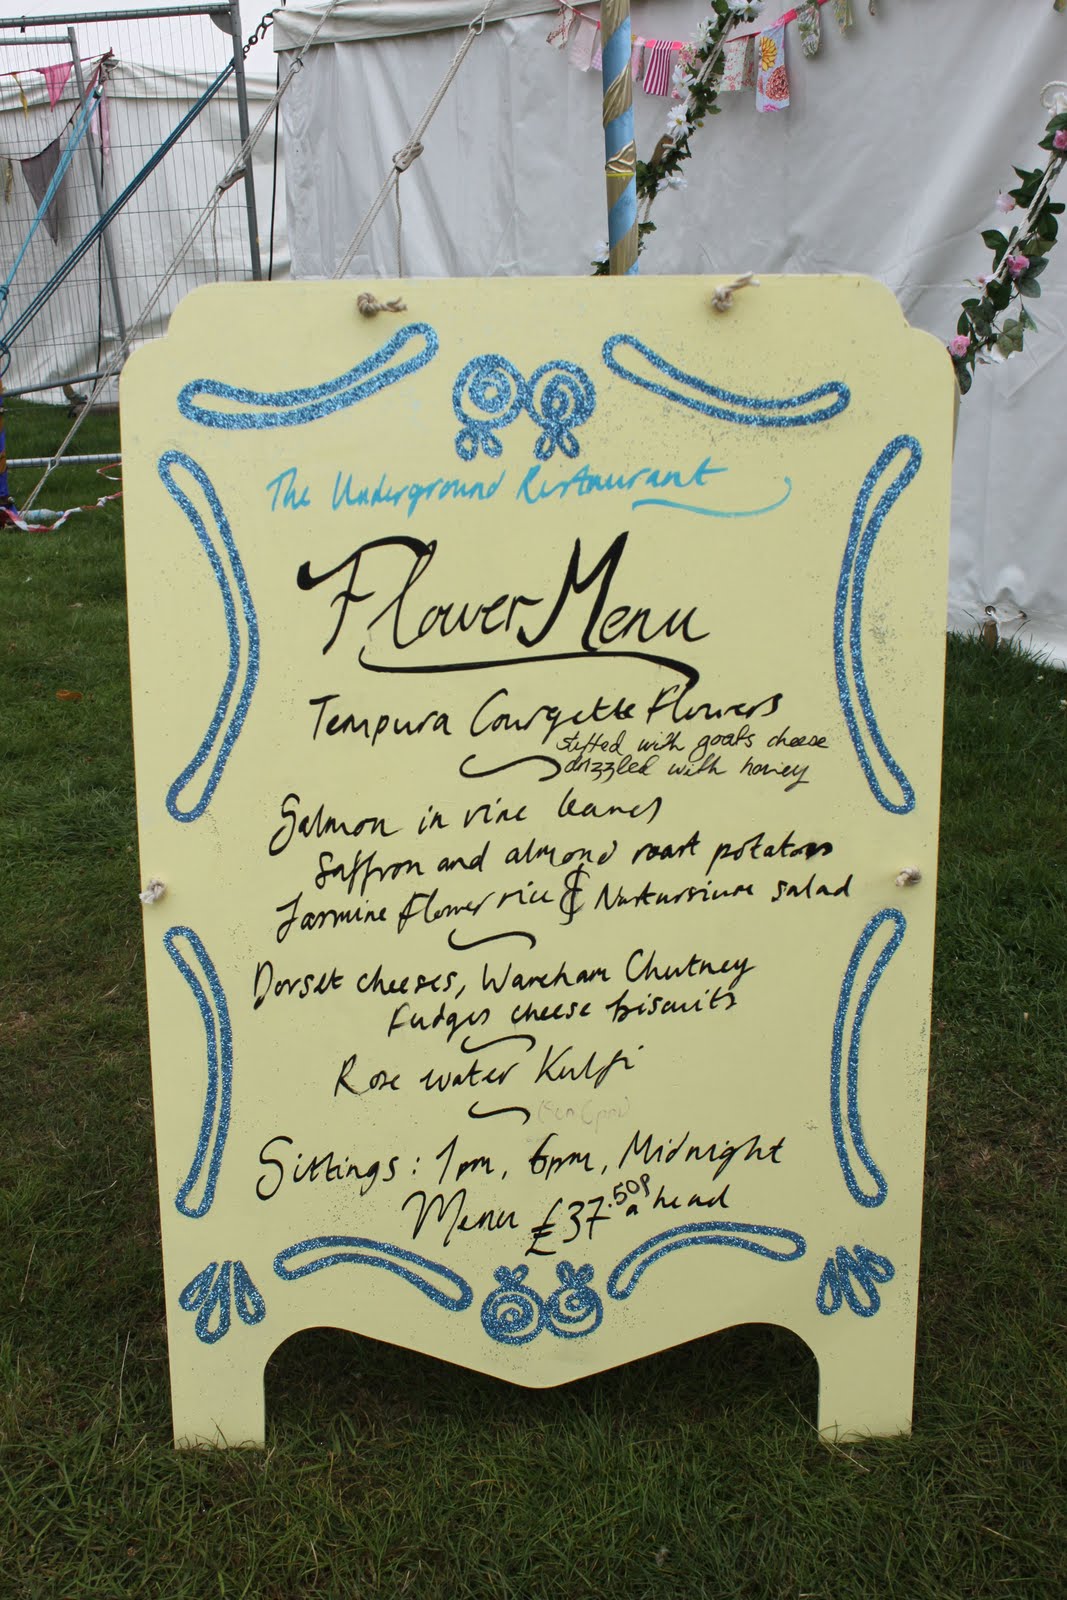 The Underground Restaurant
Flower Menu
Tempura Courgette Flowers
stuffed with goats cheese
drizzled with honey
Salmon in vine leaves
Saffron and almond roast potatoes
Jasmine Flower rice & Nasturtium salad
Dorset cheeses, Wareham Chutney
Fudges cheese biscuits
Rose water Kulfi
Sittings: 1pm, 6pm, Midnight
Menu £37.50p a head